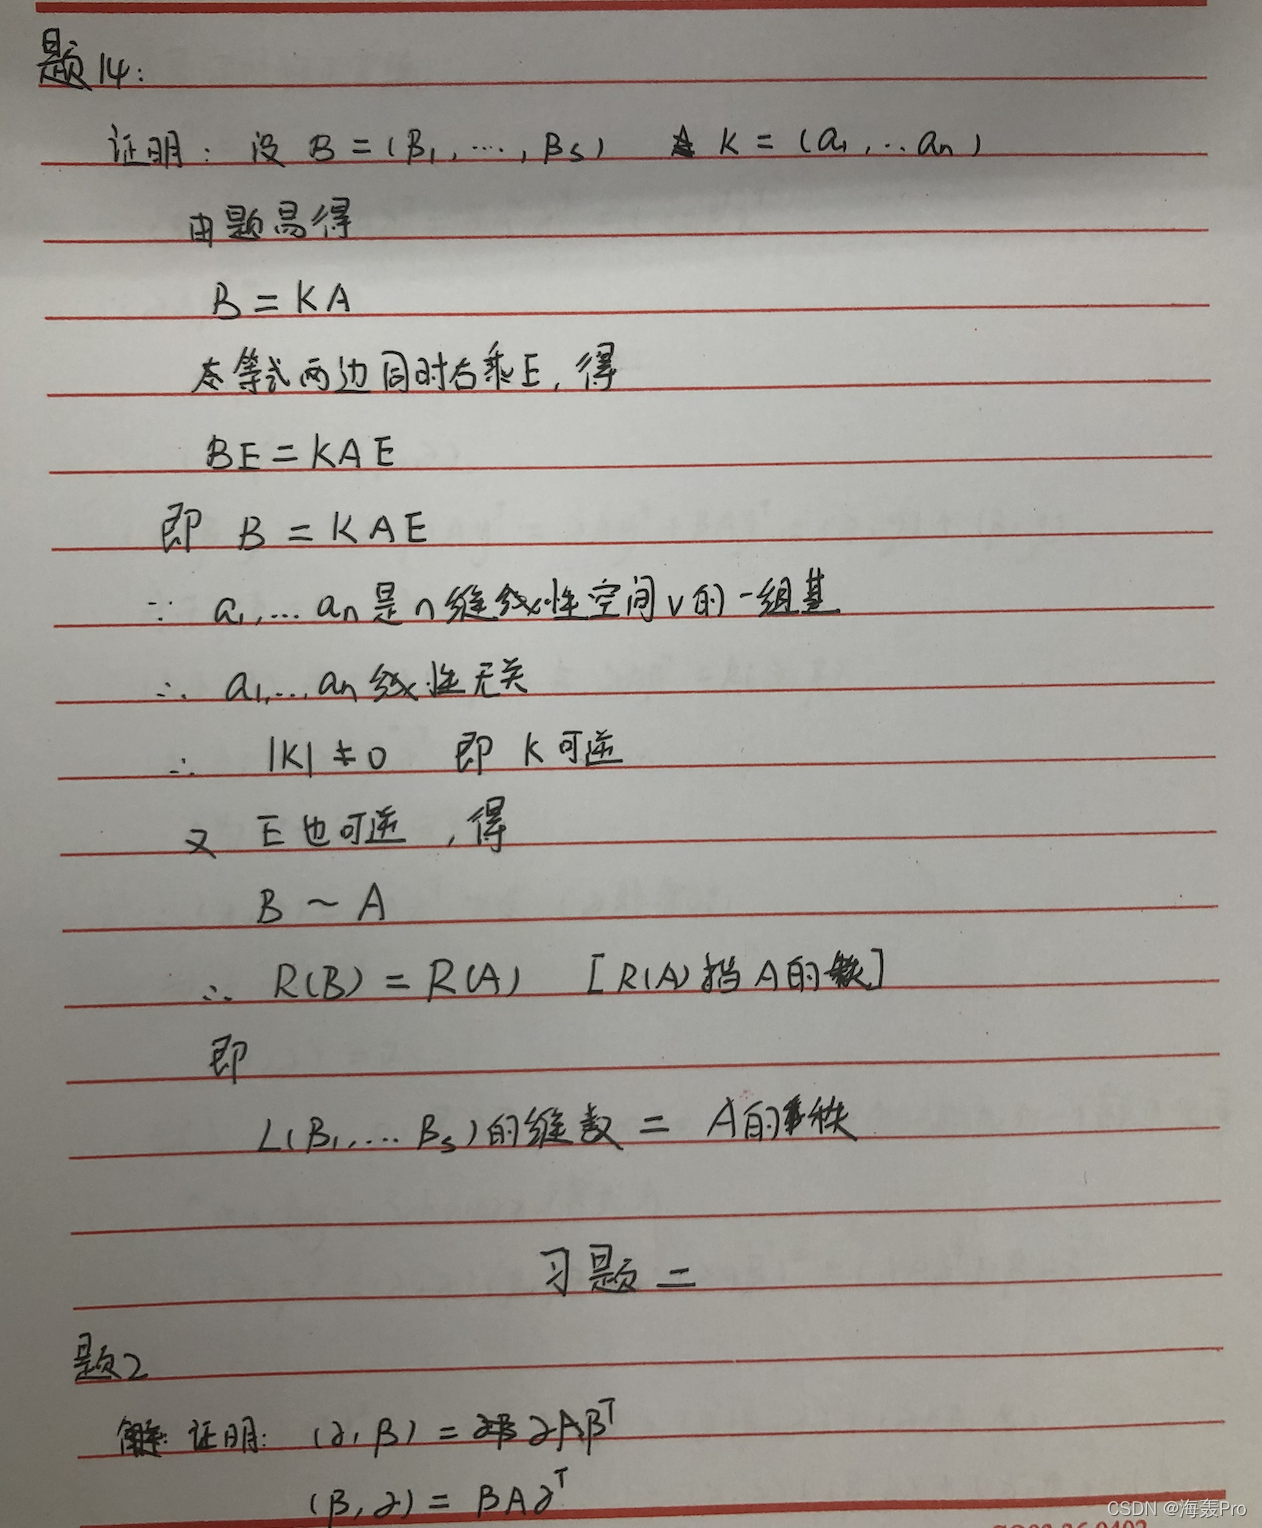 题14:
证明: 设 B = (β₁, …, βs) K = (a₁, … an)
由题易得
B = KA
在等式两边同时右乘E, 得
BE = KAE
即 B = KAE
∵ a₁, … an 是n维线性空间V的一组基
∴ a₁, … an 线性无关
∴ |K| ≠ 0 即 K可逆
又 E也可逆, 得
B ~ A
∴ R(B) = R(A) [R(A)指A的秩]
即
L(β₁, … βs)的维数 = A的秩
习题二
题2
证明: (α, β) = αAβᵀ
(β, α) = βAαᵀ
CSDN @海轰Pro